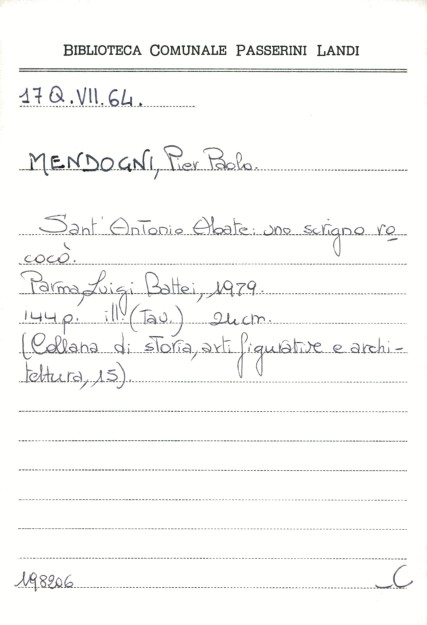 BIBLIOTECA COMUNALE PASSERINI LANDI
17 Q.VII.64.
MENDOGNI, Pier Paolo.
Sant'Antonio Abate: uno scrigno ro
cocò.
Parma, Luigi Battei, 1979.
144 p. ill. (Tav.) 24 cm.
(Collana di storia, arti figurative e archi-
tettura, 15).
198206
C